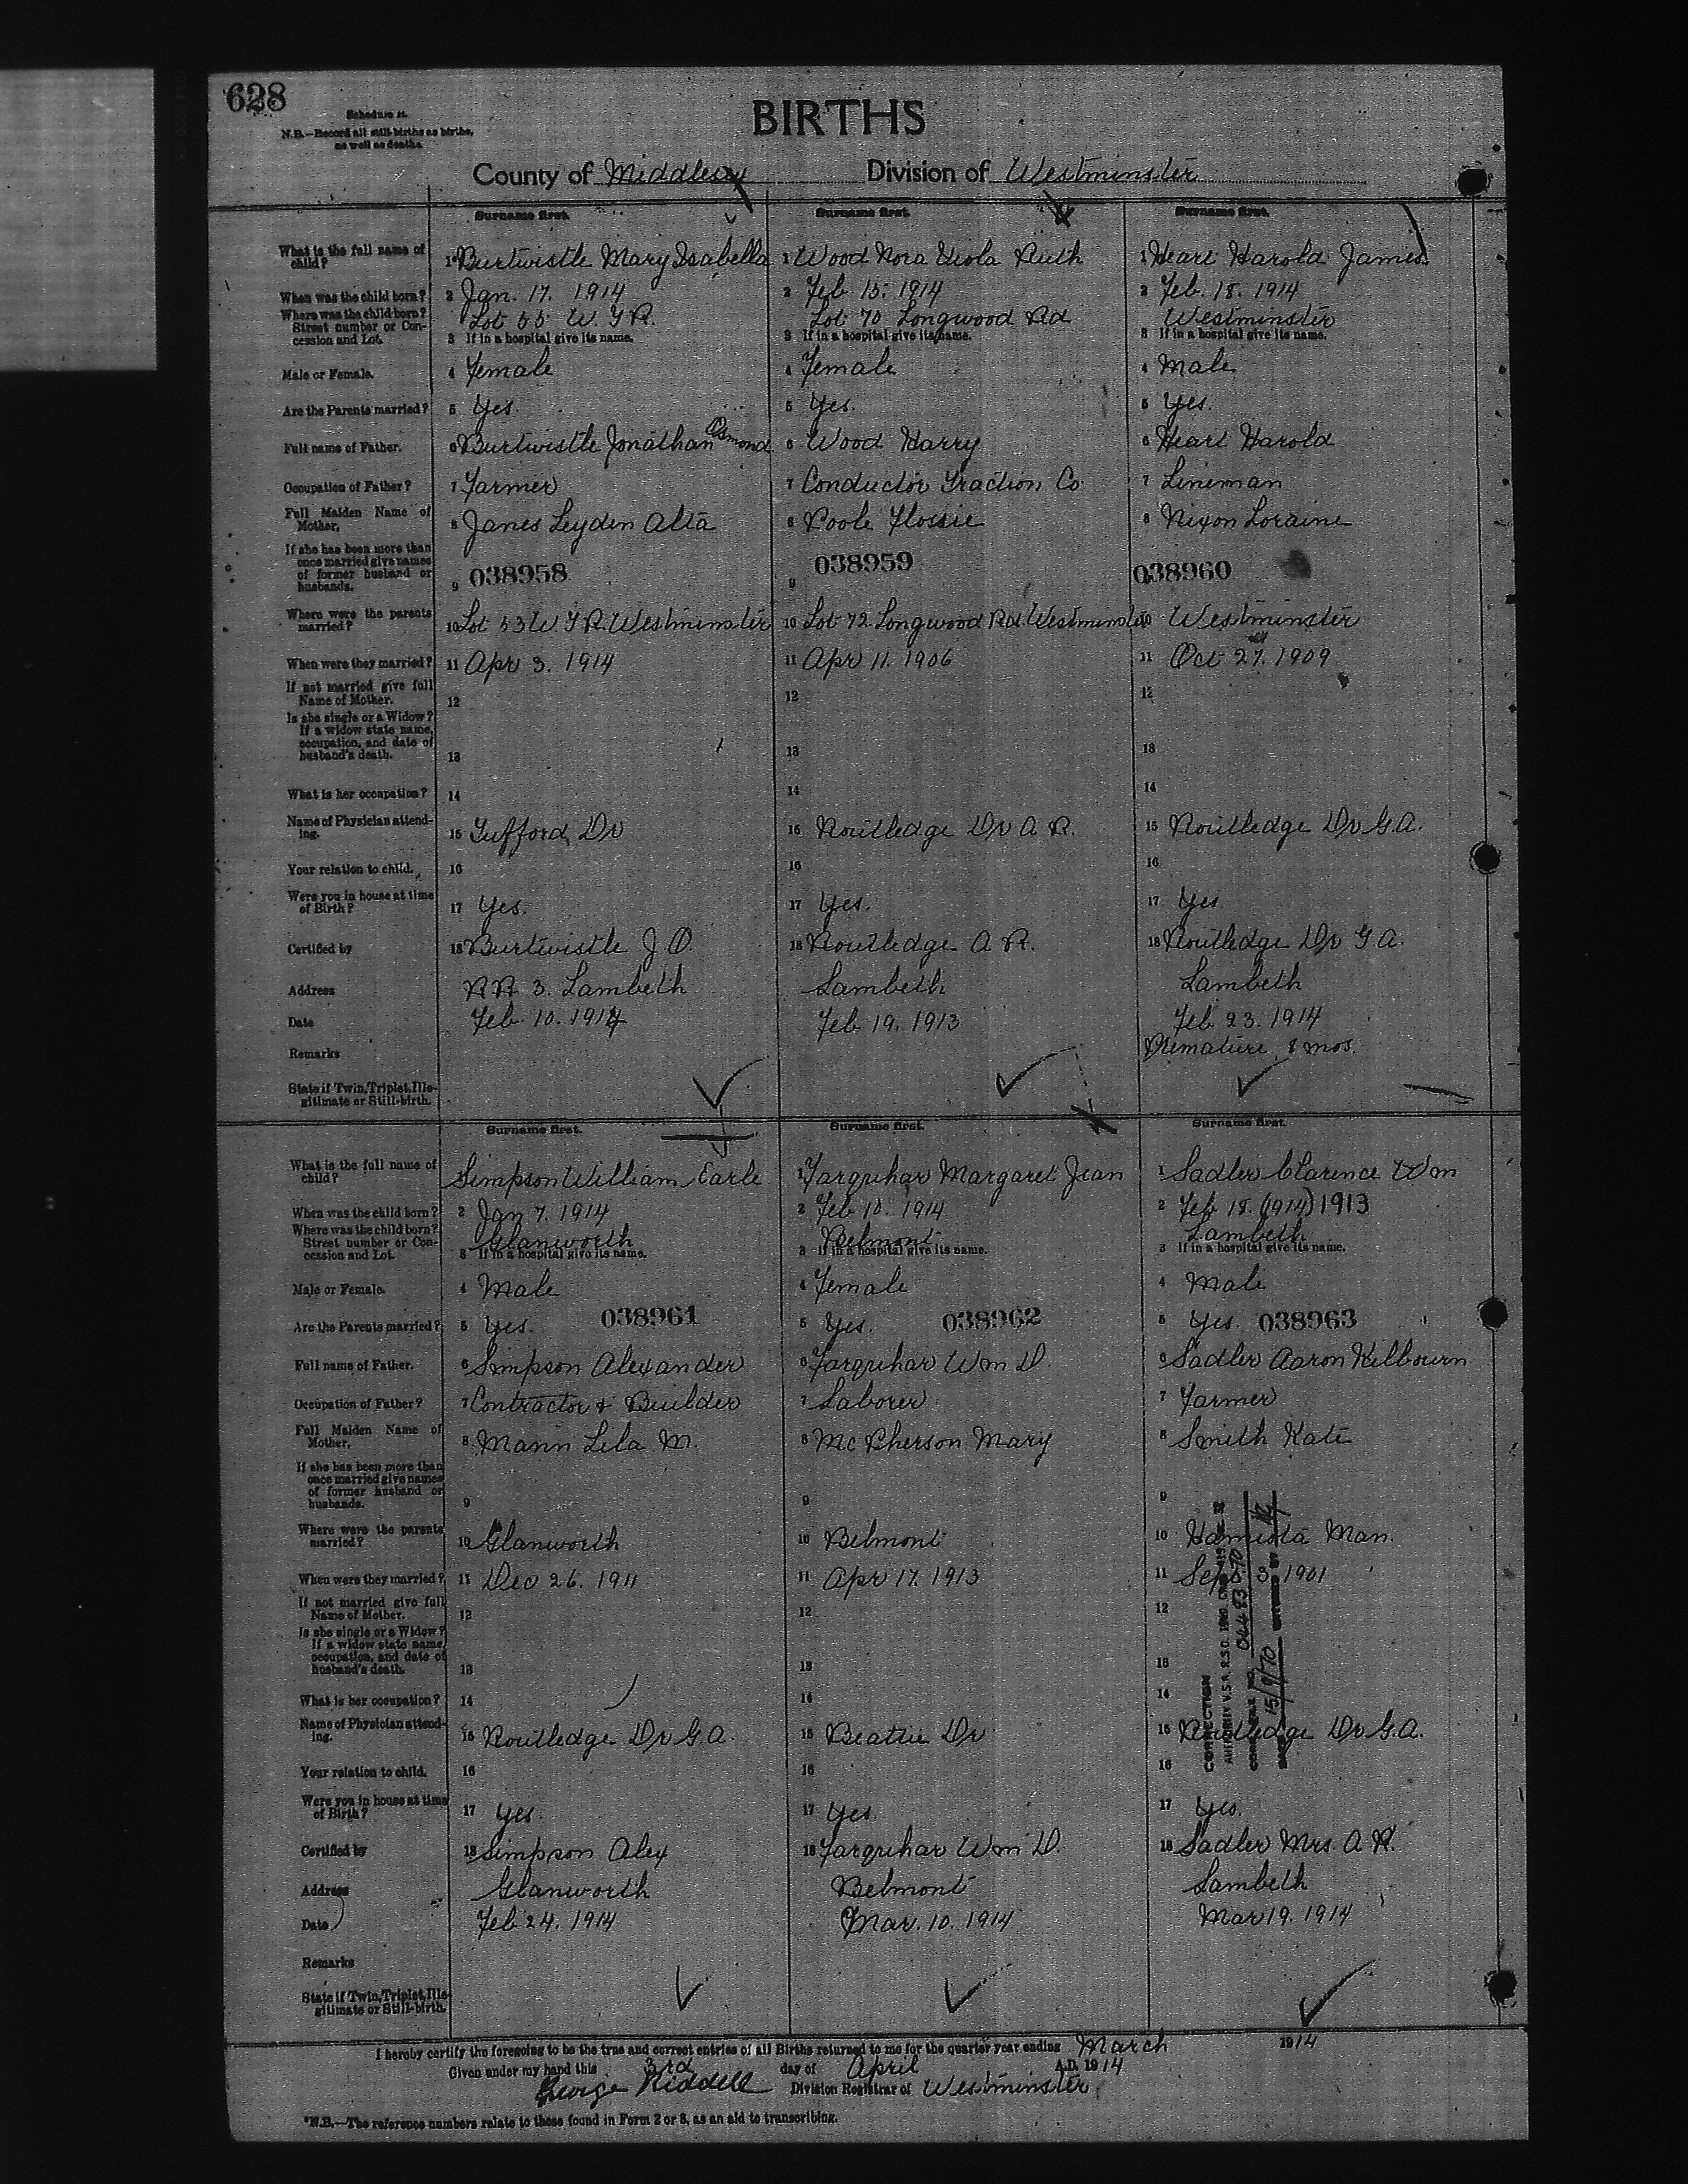 628
Schedule A.
N.B.—Record all still-births as births, as well as deaths.
BIRTHS
County of Middlesex Division of Westminster
Surname first. Surname first. Surname first.
What is the full name of child? 1 Burtwistle Mary Isabella 1 Wood Nora Viola Ruth 1 Heart Harold James
When was the child born? 2 Jan. 17. 1914 2 Feb. 15. 1914 2 Feb. 18. 1914
Where was the child born? Street number or Concession and Lot. Lot 55 W. T R. Lot 70 Longwood Rd Westminster
3 If in a hospital give its name. 3 If in a hospital give its name. 3 If in a hospital give its name.
Male or Female. 4 Female 4 Female 4 Male
Are the Parents married? 5 Yes. 5 Yes. 5 Yes.
Full name of Father. 6 Burtwistle Jonathan Osmond 6 Wood Harry 6 Heart Harold
Occupation of Father? 7 Farmer 7 Conductor Traction Co 7 Lineman
Full Maiden Name of Mother. 8 Janes Leyden Alta 8 Poole Flossie 8 Nixon Loraine
If she has been more than once married give names of former husband or husbands. 9 038958 9 038959 038960
Where were the parents married? 10 Lot 53 W. T R. Westminster 10 Lot 72 Longwood Rd. Westminster 10 Westminster
When were they married? 11 Apr 3. 1914 11 Apr 11. 1906 11 Oct 27. 1909
If not married give full Name of Mother. 12 12 12
Is she single or a Widow? If a widow state name, occupation, and date of husband's death. 13 13 13
What is her occupation? 14 14 14
Name of Physician attending. 15 Tufford Dr 15 Routledge Dr A R. 15 Routledge Dr G.A.
Your relation to child. 16 16 16
Were you in house at time of Birth? 17 Yes. 17 Yes. 17 Yes
Certified by 18 Burtwistle J O. 18 Routledge A R. 18 Routledge Dr G A.
Address RR 3. Lambeth Lambeth Lambeth
Date Feb. 10. 1914 Feb 19. 1913 Feb. 23. 1914
Remarks Premature 8 mos.
State if Twin, Triplet, Illegitimate or Still-birth.
Surname first. Surname first. Surname first.
What is the full name of child? Simpson William Earle 1 Farquhar Margaret Jean 1 Sadler Clarence Wm
When was the child born? 2 Jan 7. 1914 2 Feb 10. 1914 2 Feb 18. (1914) 1913
Where was the child born? Street number or Concession and Lot. Glanworth Belmont Lambeth
3 If in a hospital give its name. 3 If in a hospital give its name. 3 If in a hospital give its name.
Male or Female. 4 Male 4 Female 4 Male
Are the Parents married? 5 Yes. 038961 5 Yes. 038962 5 Yes. 038963
Full name of Father. 6 Simpson Alexander 6 Farquhar Wm D. 6 Sadler Aaron Kilbourn
Occupation of Father? 7 Contractor & Builder 7 Laborer 7 Farmer
Full Maiden Name of Mother. 8 Mann Lila M. 8 McPherson Mary 8 Smith Kate
If she has been more than once married give names of former husband or husbands. 9 9 9
Where were the parents married? 10 Glanworth 10 Belmont 10 Hamiota Man.
When were they married? 11 Dec 26. 1911 11 Apr 17. 1913 11 Sep 3 1901
If not married give full Name of Mother. 12 12 12
Is she single or a Widow? If a widow state name, occupation, and date of husband's death. 13 13 13
What is her occupation? 14 14 14
Name of Physician attending. 15 Routledge Dr G.A. 15 Beattie Dr 15 Routledge Dr G.A.
Your relation to child. 16 16 16
Were you in house at time of Birth? 17 Yes. 17 Yes. 17 Yes.
Certified by 18 Simpson Alex 18 Farquhar Wm D. 18 Sadler Mrs. A K.
Address Glanworth Belmont Lambeth
Date Feb 24. 1914 Mar. 10. 1914 Mar 19. 1914
Remarks
State if Twin, Triplet, Illegitimate or Still-birth.
CORRECTION
AUTHORITY V.S.A. R.S.O.
15/9/70
I hereby certify the foregoing to be the true and correct entries of all Births returned to me for the quarter year ending March 1914
Given under my hand this 3rd day of April A.D. 1914
George Riddell Division Registrar of Westminster
*N.B.—The reference numbers relate to those found in Form 2 or 3, as an aid to transcribing.